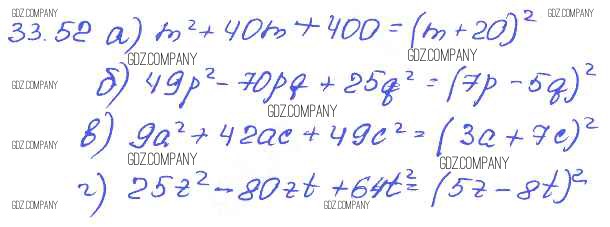 GDZ.COMPANY GDZ.COMPANY
33.52 а) m² + 40m + 400 = (m + 20)²
GDZ.COMPANY
GDZ.COMPANY б) 49p² - 70pq + 25q² = (7p - 5q)²
GDZ.COMPANY
GDZ.COMPANY в) 9a² + 42ac + 49c² = (3a + 7c)²
GDZ.COMPANY GDZ.COMPANY
г) 25z² - 80zt + 64t² = (5z - 8t)²
GDZ.COMPANY GDZ.COMPANY